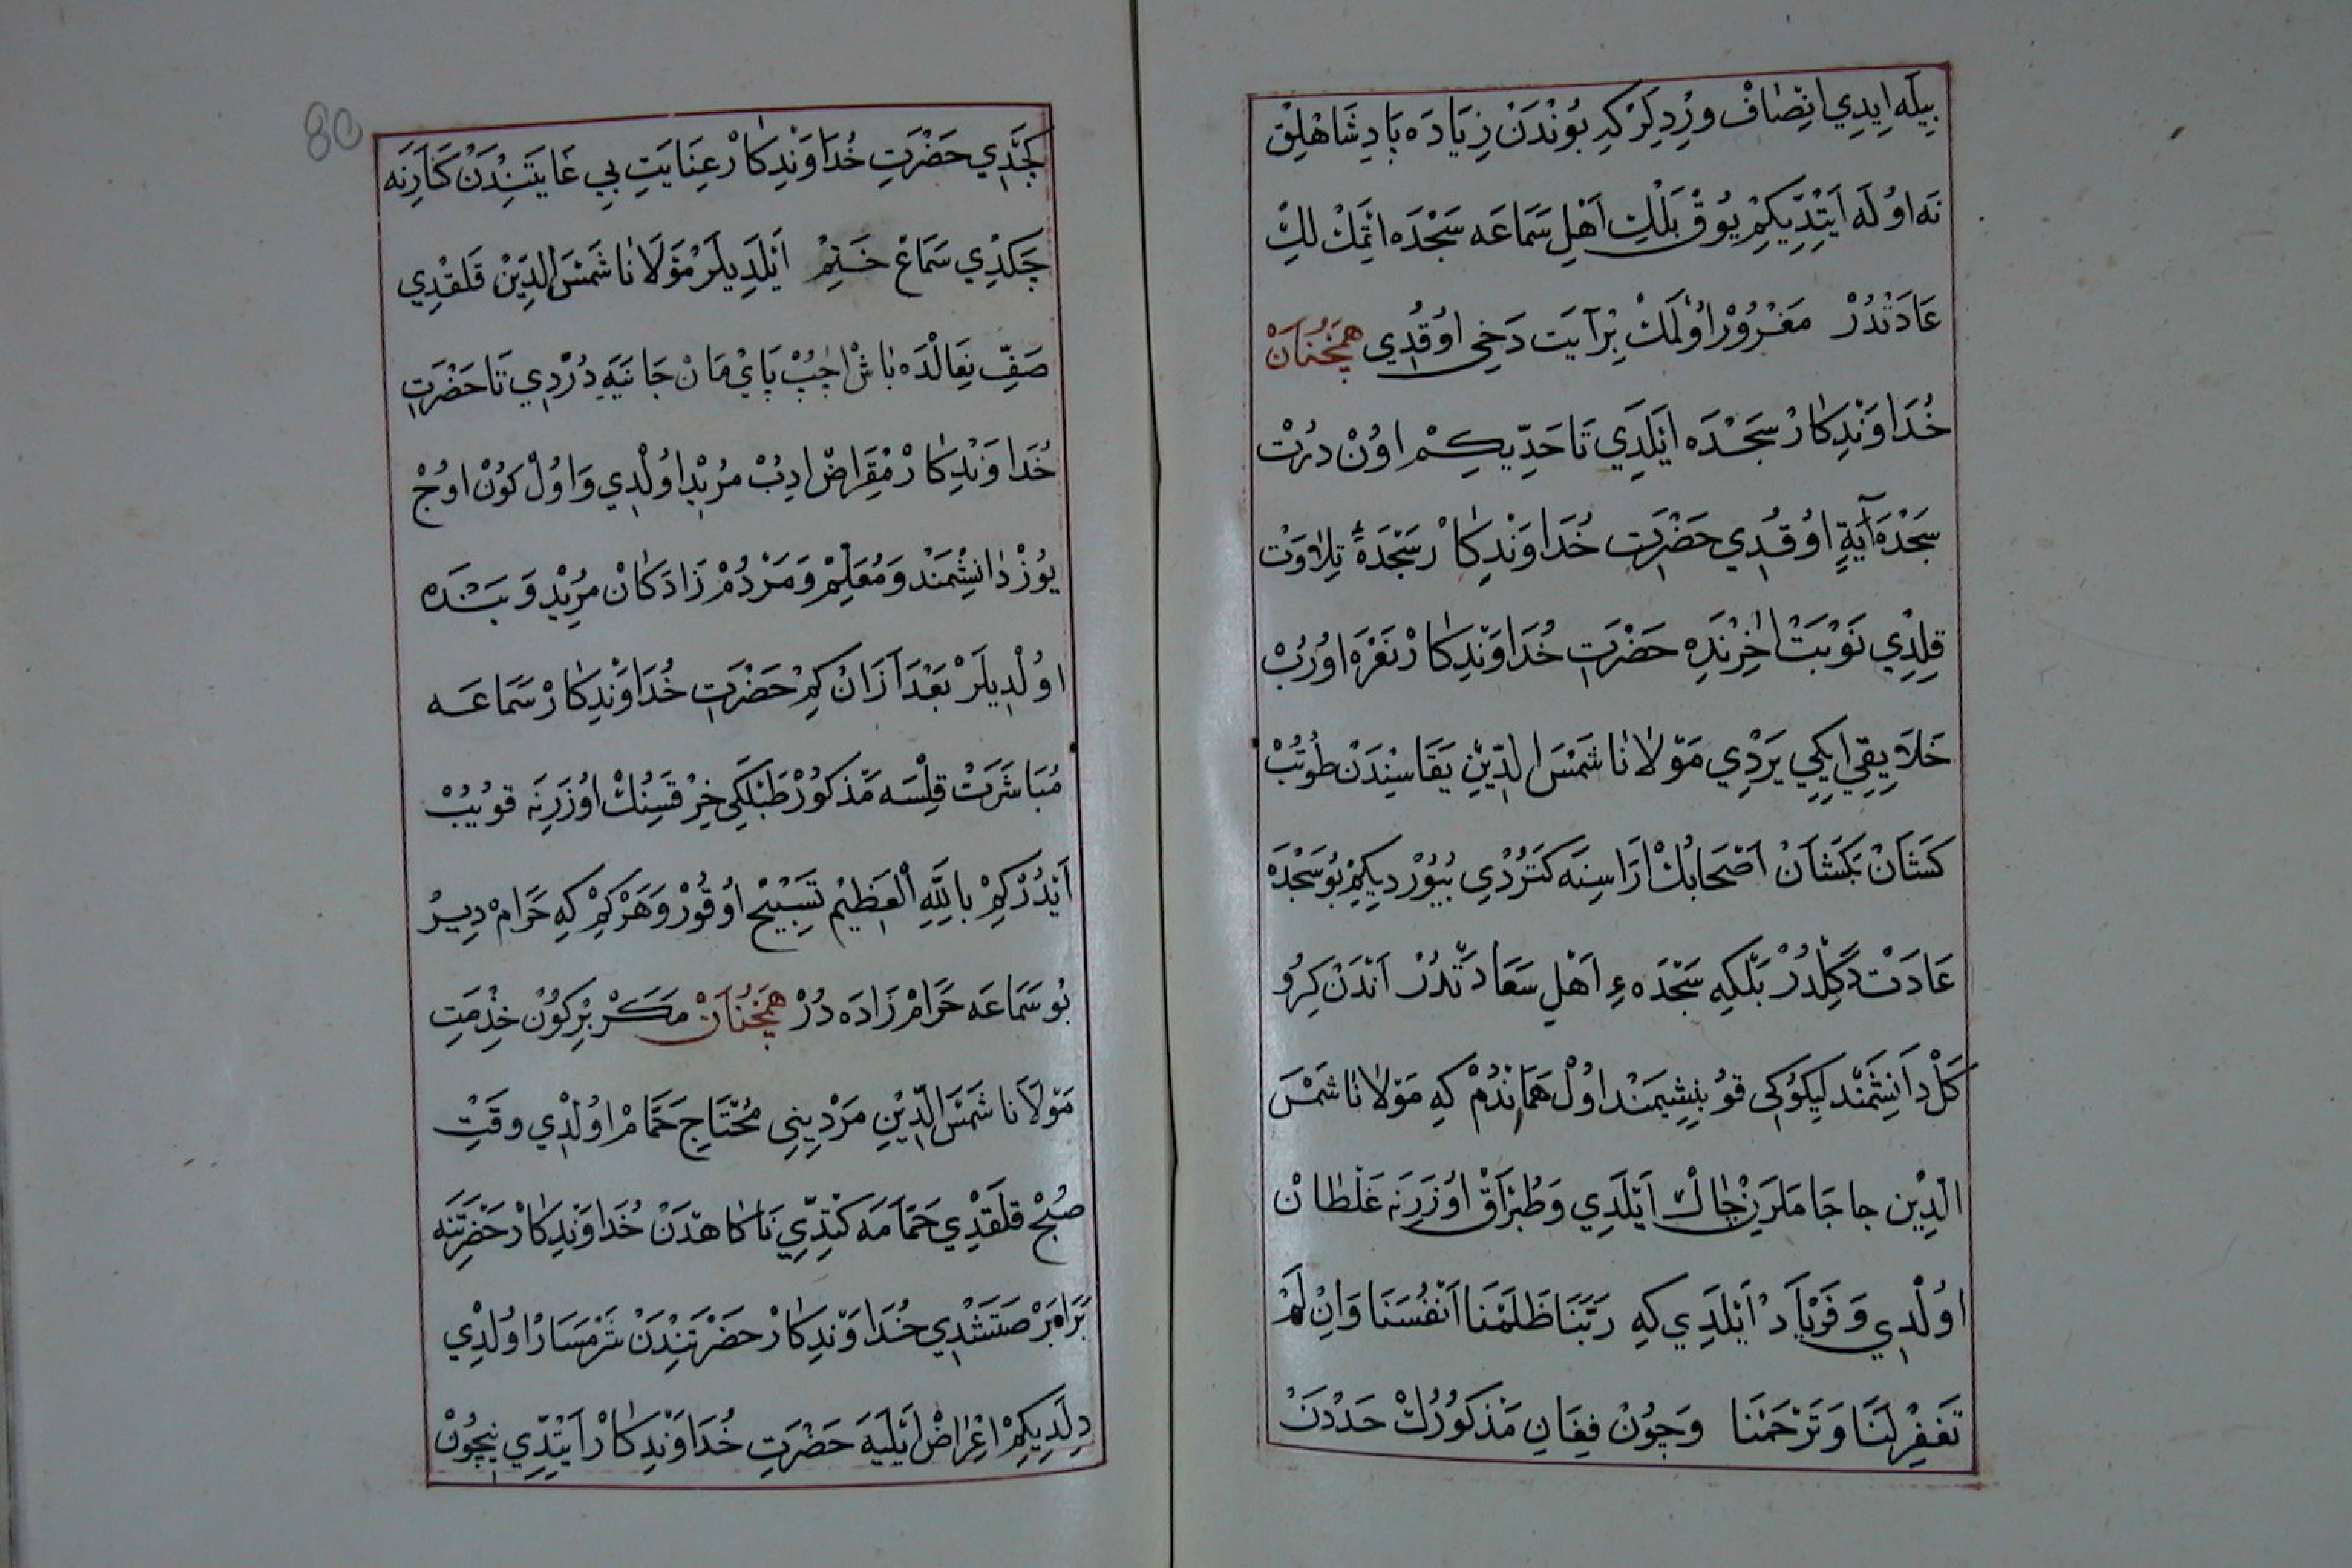 بِيلَه اِيدِي اِنْصَافْ وِرُدِكَرْكِدِ بُونْدَنْ زِيَادَه پَادِشَاهْلِقْ
نَه اوُلَه اَيْتِدِّيكِمْ يُوقْ بَلْكِ اَهْلِ سَمَاعَه سَجْدَه اتْمَكْ لِكْ
عَادَتْدُرْ مَغْرُوْر اوُلْمَكْ بِرْ آيَت دَخِي اوُقُدِي هَمْچُنَانْ
خُدَاوَنْدِكَارْ سَجْدَه اَيْلَدِي تَا حَدِّيكِمْ اوُنْ دُرْتْ
سَجْدَه آيَةٍ اوُقُدِي حَضْرَتِ خُدَاوَنْدِكَارْ سَجْدَهٔ تِلَاوَتْ
قِلِدْي نَوْبَتْ اٰخِرِنْدَه حَضْرَتِ خُدَاوَنْدِكَارْ نَعْرَه اوُرُبْ
خَلَايِقِي اِيكِي يَرْدِي مَوْلَانَا شَمْسَ الدِّينِ يَقَاسِنْدَنْ طُوتُبْ
كَشَانْ بَكَشَانْ اَصْحَابُكْ اَرَاسِنَه كَتُرْدِي بُيُوْردِيكِمْ بُو سَجْدَهٔ
عَادَتْ دَكِلْدُرْ بَلْكِه سَجْدَهءِ اَهْلِ سَعَادَتْدُرْ اَنْدَنْ كِرُو
كَلْ دَانِشْمَنْدلِيكوُكِي قوُ بِنِشِيمَنْد اوُلْ هَمَانْدُمْ كِه مَوْلَانَا شَمْسَ
الدِّيْن جا جَامَلَرِنْ چَاكْ اَيْلَدِي وَطُبْرَاقْ اوُزَرِنَه غَلْطَانْ
اوُلْدِي وَفَرْيَادْ اَيْلَدِي كِه رَبَّنَا ظَلَمْنَا اَنْفُسَنَا وَاِنْ لَمْ
تَغْفِرْ لَنَا وَتَرْحَمْنَا وَچوُنْ فِغَانِ مَذْكوُرُكْ حَدْدَنْ
كَچْدِي حَضْرَتِ خُدَاوَنْدِكَارْ عِنَايَتِ بِي غَايَتَنْدَنْ كَنَارِنَه
چَكْدِي سَمَاعْ خَتِمْ اَيْلَدِيلَرْ مَوْلَانَا شَمْسَ الدِّيْنْ قَلقْدِي
صَفِّ نِعَالْدَه بَاشْ اَچُبْ پَايْ مَاچَانِيَه دُرْدِي تَا حَضْرَتِ
خُدَاوَنْدِكَارْ مِقَرَاضْ ادِبْ مُرِيْدِ اوُلْدِي وَاوُلْ كوُنْ اوُچْ
يُوزْ دَانِشْمَنْد وَمُعَلِّمْ وَمَرْدُمْ زَادَكَانْ مُرِيْدِ وَ بَنْدَه
اوُلْدِيلَرْ بَعْدَ اَزَانْ كِمْ حَضْرَتِ خُدَاوَنْدِكَارْ سَمَاعَه
مُبَاشَرَتْ قِلْسَه مَذْكوُرْ طَبْلَكِي خِرْقَسِنُكْ اوُزَرِنَه قوُيُبْ
اَيْدُرْكِمْ بِاللّٰهِ الْعَظِيْم تَسْبِيْحْ اوُقُوْر وَهَرْكِمْ كِه حَرَامْ دِيرْ
بُو سَمَاعَه حَرَامْ زَادَه دُرْ هَمْچُنَانْ مَكَرْ بِرْ كوُنْ خِدْمَتِ
مَوْلَانَا شَمْسَ الدِّيْنِ مَرْدِينِي مُحْتَاجِ حَمَّامْ اوُلْدِي وقَتِ
صُبْحْ قَلقْدِي حَمَّامَه كِتِدِّي نَاكَاهْدَنْ خُدَاوَنْدِكَارْ حَضْرَتِنَه
بَرَابَرْ صَتَشْدِي خُدَاوَنْدِكَارْ حَضْرَتِنْدَنْ شَرْمَسَارْ اوُلْدِي
دِلَدِيكِمْ اِعْرَاضْ اَيْلَيَه حَضْرَتِ خُدَاوَنْدِكَارْ اَيْتِدِّي نِيچُوْنْ
80